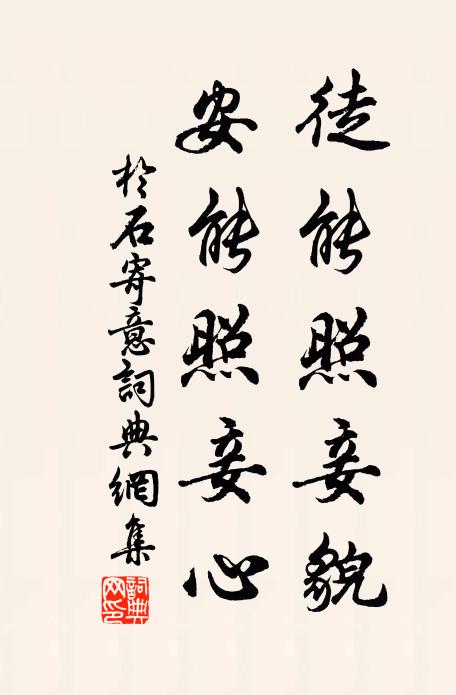 徒能照妾貌
安能照妾心
於石寄意詞典網集
詞典
网印